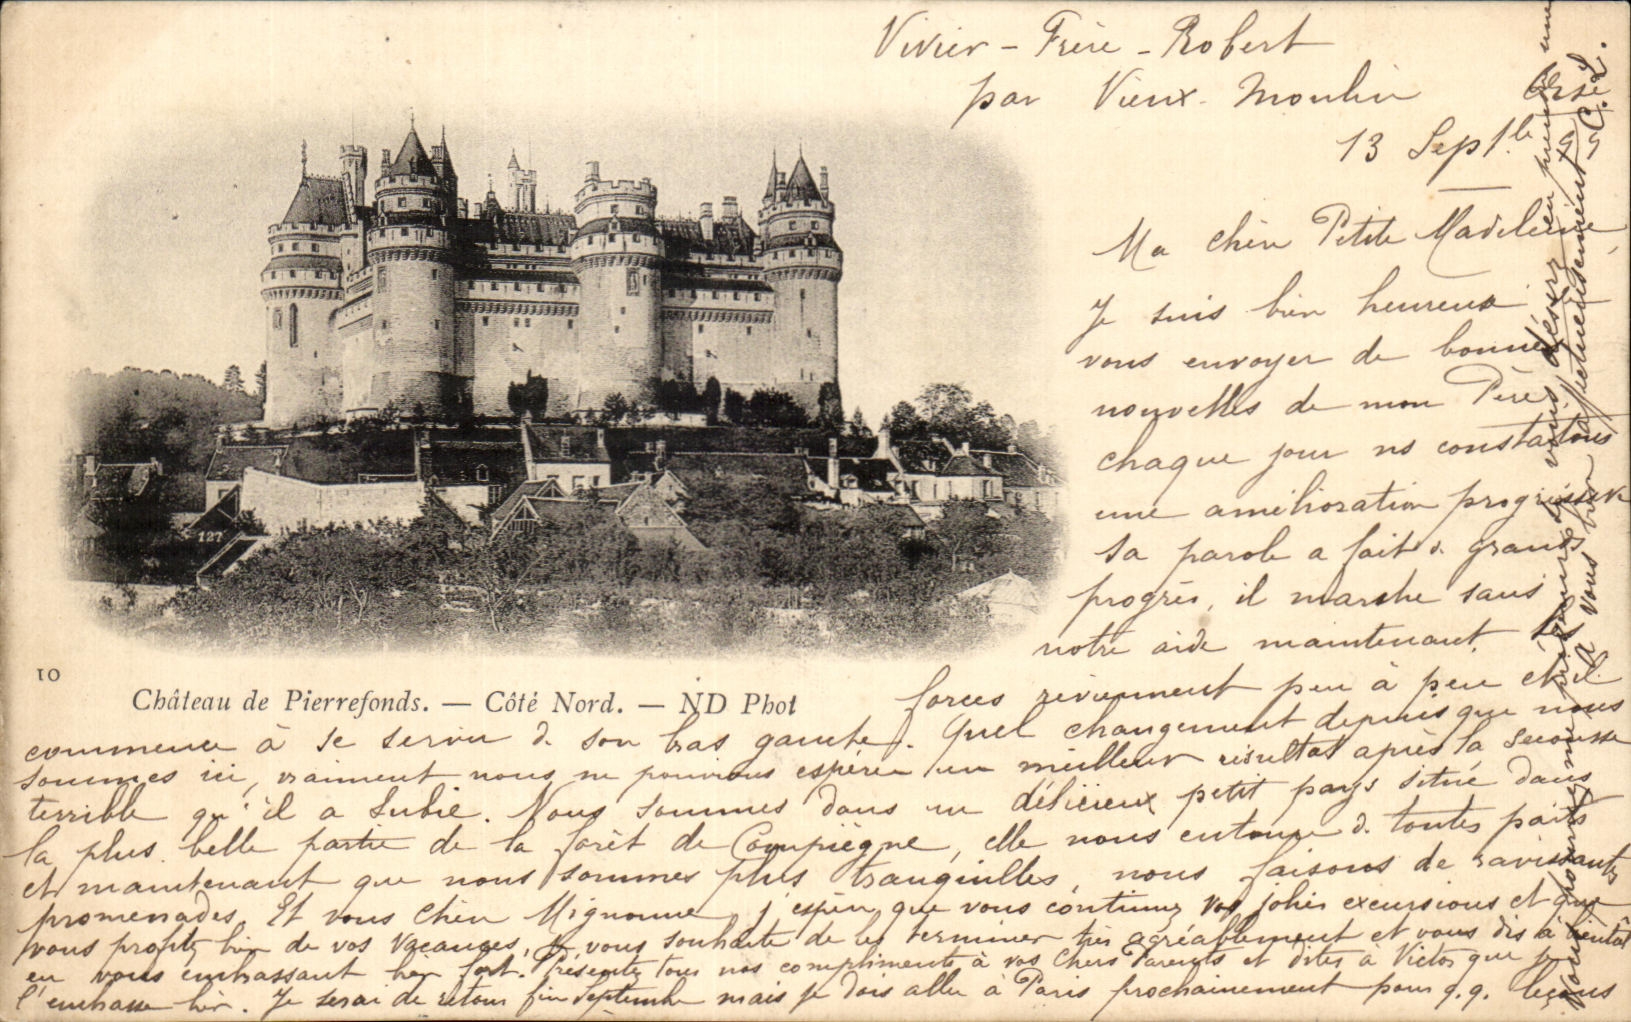 Vivier - Frère - Robert
par Vieux-Moulin Oise
13 Sept.bre
Ma chère Petite Madeleine,
Je suis bien heureux
vous envoyer de bonnes
nouvelles de mon Père
chaque jour ns constatons
une amélioration progressive
sa parole a fait d. grands
progrès, il marche sans
notre aide maintenant.
forces reviennent peu à peu et il
commence à se servir d. son bras gauche. Quel changement depuis que nous
sommes ici, vraiment nous ne pouvions espérer un meilleur résultat après la secousse
terrible qu'il a subie. Nous sommes dans un délicieux petit pays situé dans
la plus belle partie de la forêt de Compiègne, elle nous entoure d. toutes parts
et maintenant que nous sommes plus tranquilles, nous faisons de ravissantes
promenades. Et vous chère Mignonne, j'espère que vous continuez vos jolies excursions et que
vous profitez bien de vos vacances, je vous souhaite de les terminer très agréablement et vous dis à bientôt
en vous embrassant bien fort. Présentez tous nos compliments à vos Chers Parents et dites à Victor que je
l'embrasse bien. Je serai de retour fin Septembre mais je dois aller à Paris prochainement pour q.q. leçons
vous désirez en prendre une
A vous bien affectueusement
C. L.
127
10
Château de Pierrefonds. — Côté Nord. — ND Phot